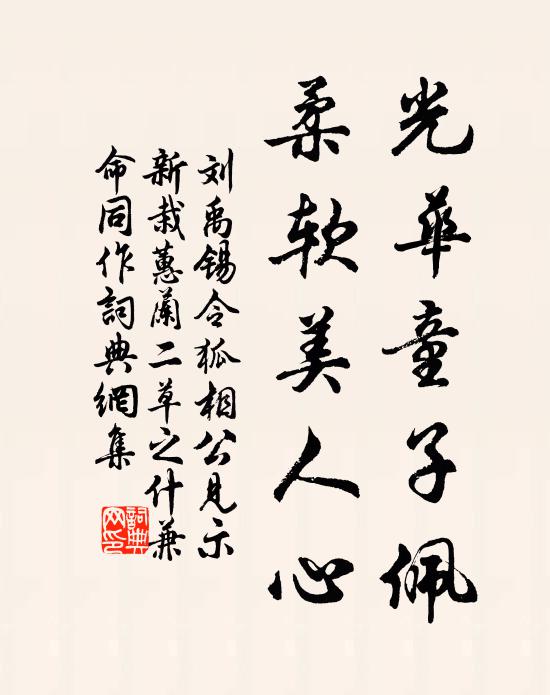 光华童子佩
柔软美人心
刘禹锡令狐相公见示
新栽蕙兰二草之什兼
命同作词典網集
詞典
网印